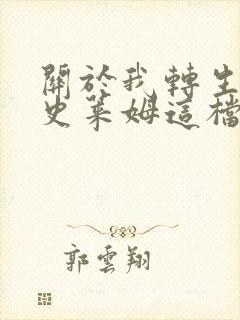 關於我轉生
史萊姆這檔
郭雲翔